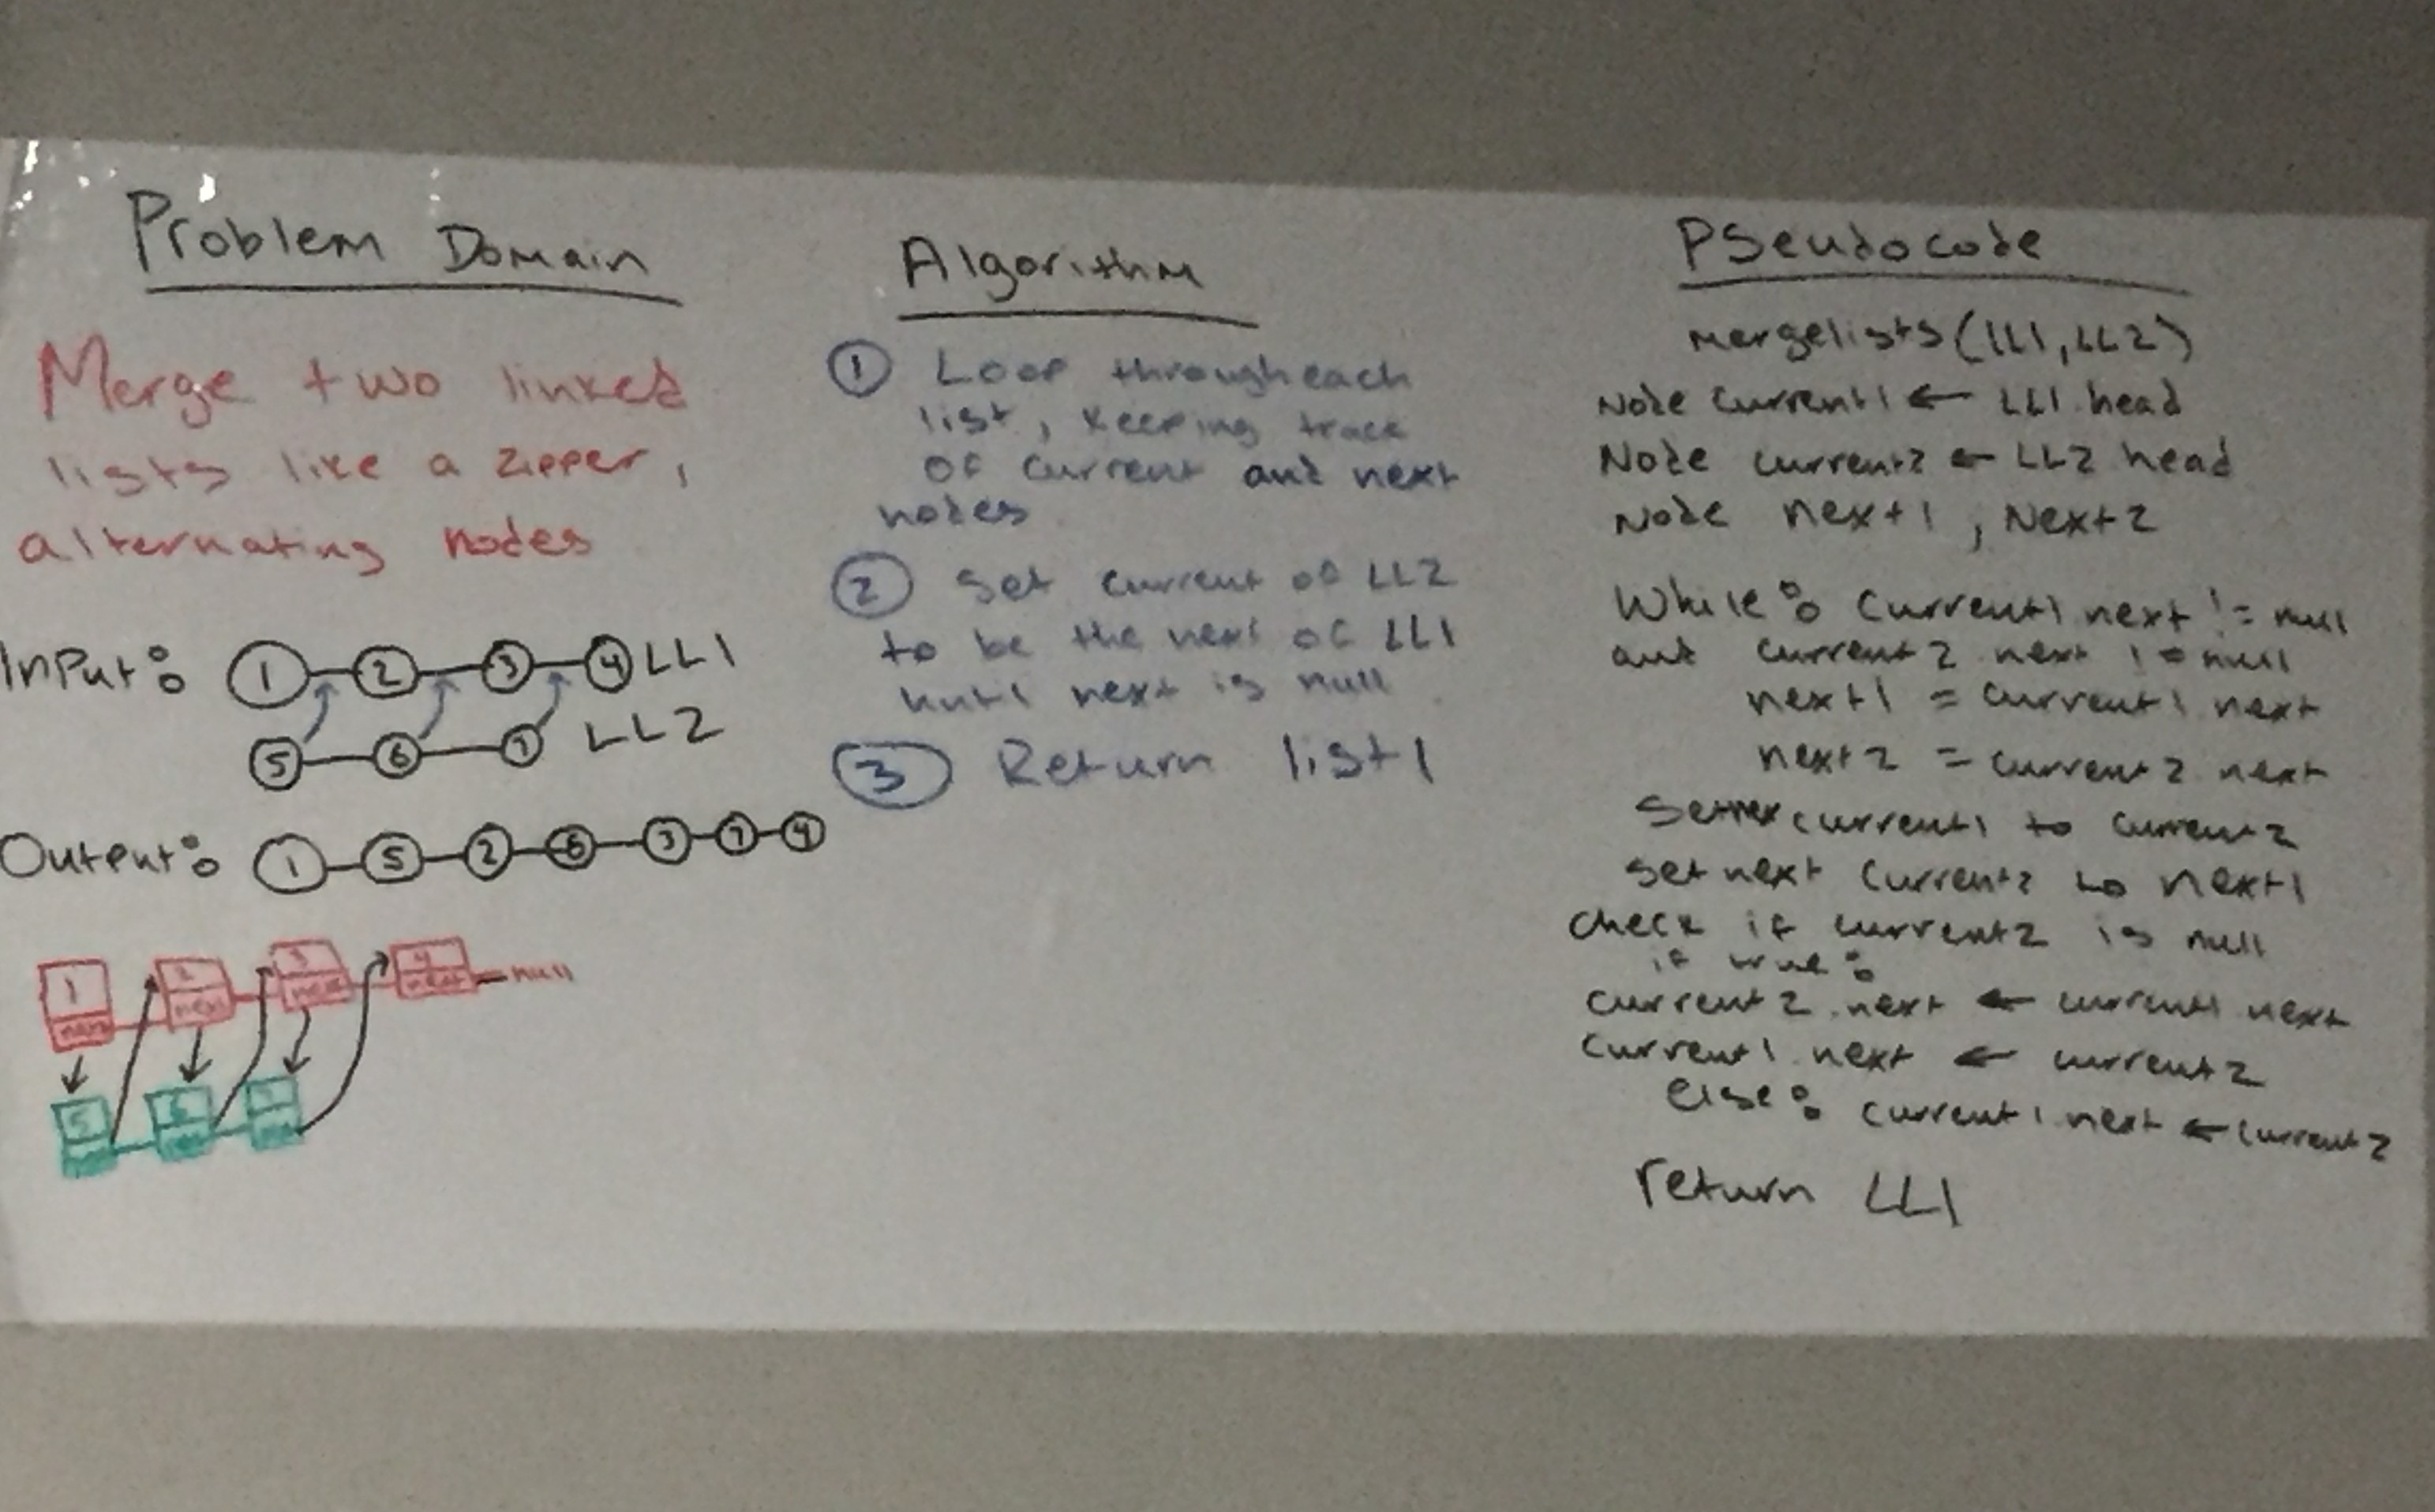 Problem Domain
Merge two linked
lists like a zipper,
alternating nodes
Input:
1 2 3 4 LL1
5 6 7 LL2
Output: 1 5 2 6 3 7 4
1 2 3 4
next next next next null
5 6
Algorithm
1 Loop through each
list, keeping track
of current and next
nodes
2 Set current of LL2
to be the next of LL1
until next is null
3 Return list1
Pseudocode
mergelists(LL1, LL2)
Node Current1 ← LL1.head
Node current2 ← LL2 head
Node next1, Next2
While: Current1 next != null
and current2 next != null
next1 = current1 next
next2 = current2 next
current1 to current2
set next Current2 to next1
check if current2 is null
if true:
current2.next ← current1 next
Current1.next ← current2
Else: current1.next ← current2
return LL1